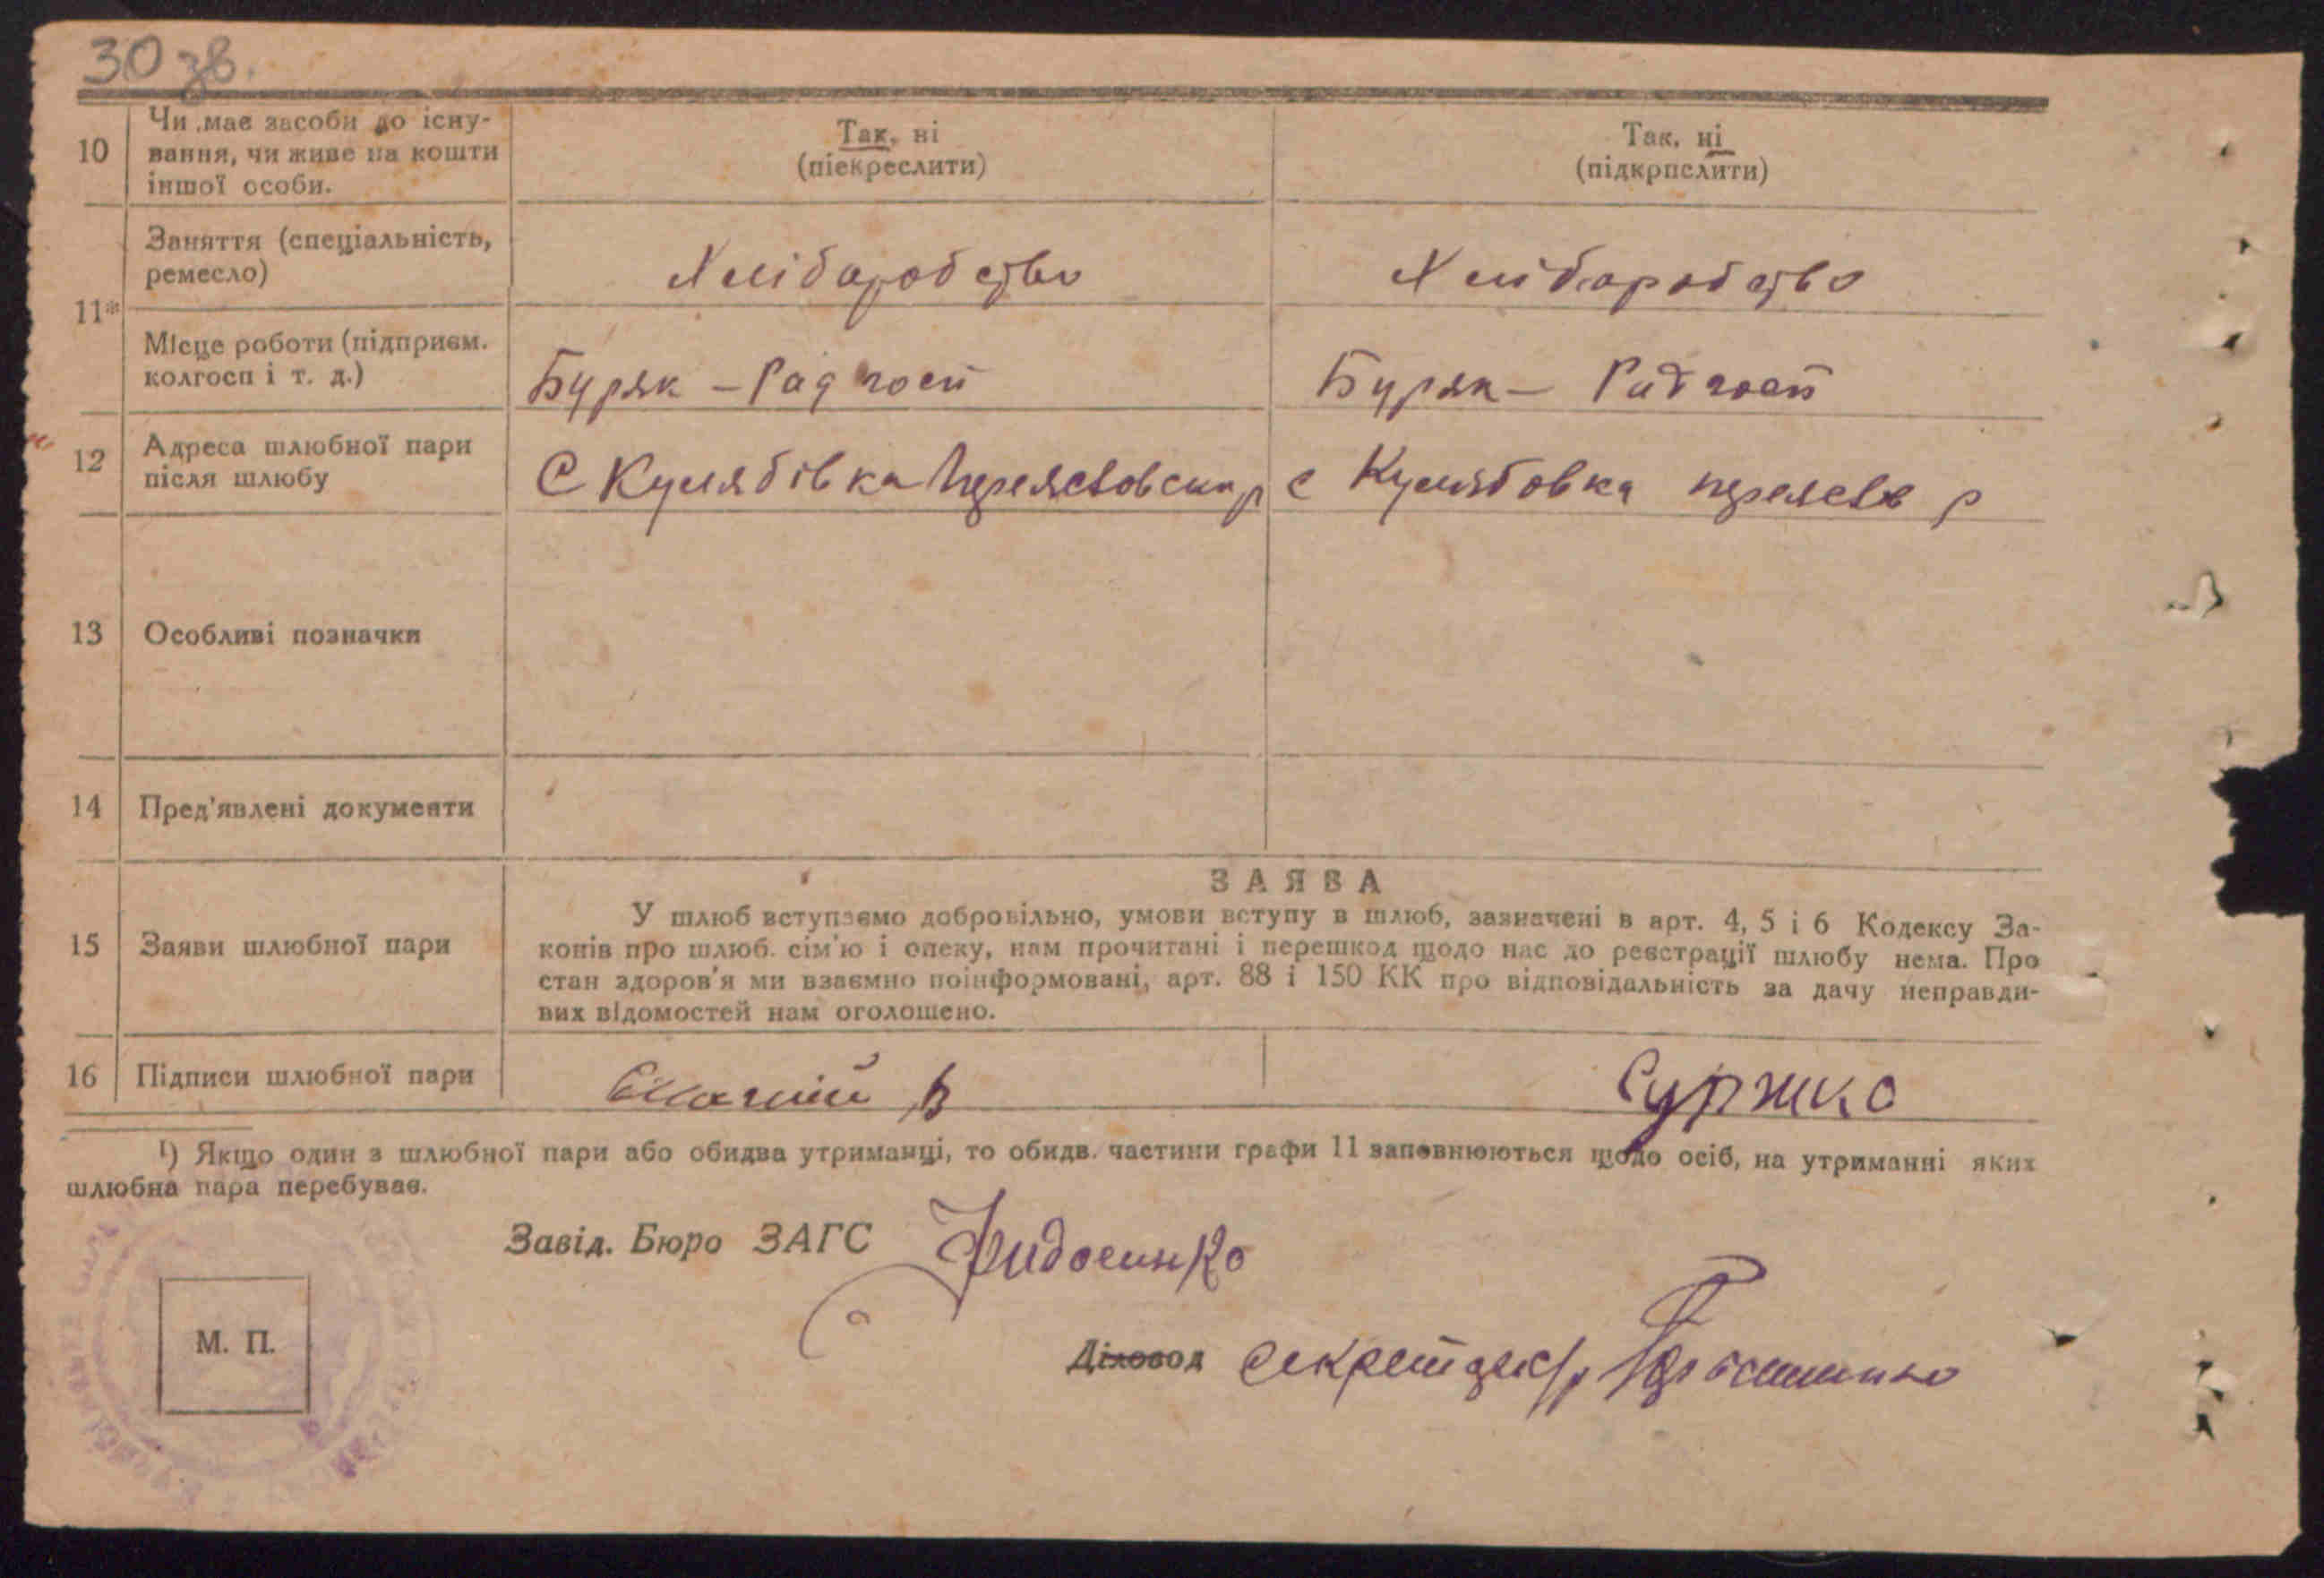 30 зв.
10
Чи має засоби до існу-
вання, чи живе на кошти
іншої особи.
Так, ні
(піекреслити)
Так, ні
(підкрпслити)
11*
Заняття (спеціальність,
ремесло)
Хлібаробство
Хлібаробство
Місце роботи (підприєм.
колгосп і т. д.)
Буряк - Радгосп
Буряк - Радгосп
12
Адреса шлюбної пари
після шлюбу
С Кулябівка Переяславськ р
с Кулябовка переяслв р
13
Особливі позначки
14
Пред'явлені документи
15
Заяви шлюбної пари
ЗАЯВА
У шлюб вступаємо добровільно, умови вступу в шлюб, зазначені в арт. 4, 5 і 6 Кодексу За-
конів про шлюб. сім'ю і опеку, нам прочитані і перешкод щодо нас до реєстрації шлюбу нема. Про
стан здоров'я ми взаємно поінформовані, арт. 88 і 150 КК про відповідальність за дачу неправди-
вих відомостей нам оголошено.
16
Підписи шлюбної пари
В
Суржко
¹) Якщо один з шлюбної пари або обидва утриманці, то обидв. частини графи 11 заповнюються щодо осіб, на утриманні яких
шлюбна пара перебуває.
Завід. Бюро ЗАГС
М. П.
Діловод секретарь